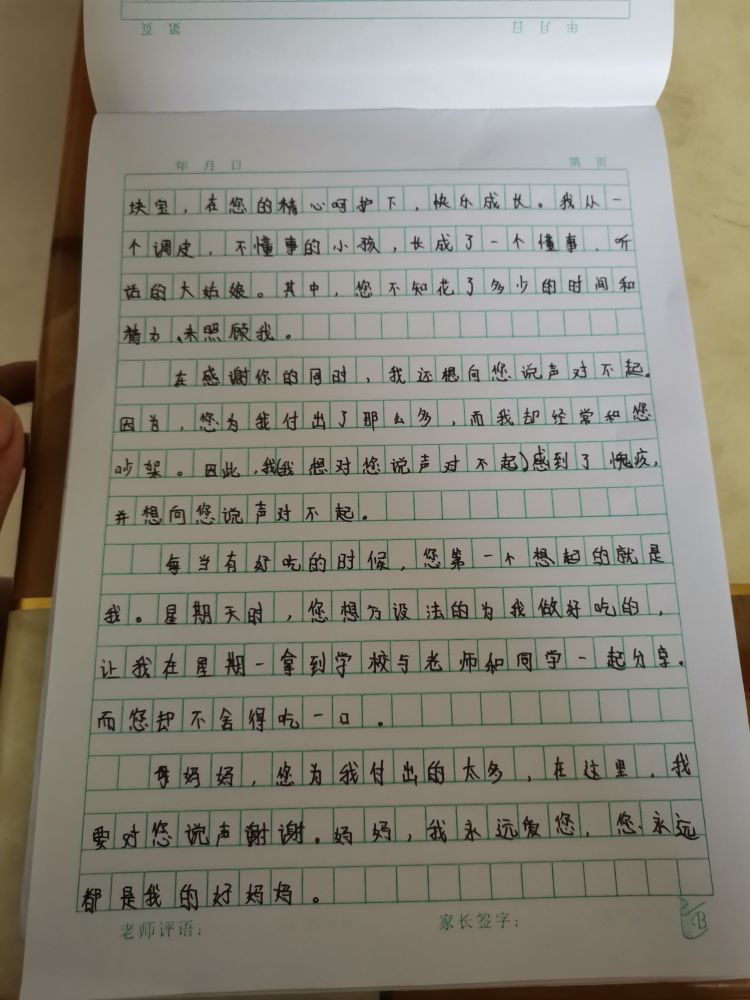 第 页
年 月 日
年 月 日 第 页
块宝，在您的精心呵护下，快乐成长。我从一
个调皮，不懂事的小孩，长成了一个懂事、听
话的大姑娘。其中，您不知花了多少的时间和
精力，来照顾我。
在感谢你的同时，我还想向您说声对不起。
因为，您为我付出了那么多，而我却经常和您
吵架。因此，我(我想对您说声对不起)感到了愧疚，
并想向您说声对不起。
每当有好吃的时候，您第一个想起的就是
我。星期天时，您想方设法的为我做好吃的，
让我在星期一拿到学校与老师和同学一起分享。
而您却不舍得吃一口。
妈妈，您为我付出的太多，在这里，我
要对您说声谢谢。妈妈，我永远爱您，您永远
都是我的好妈妈。
老师评语： 家长签字： B